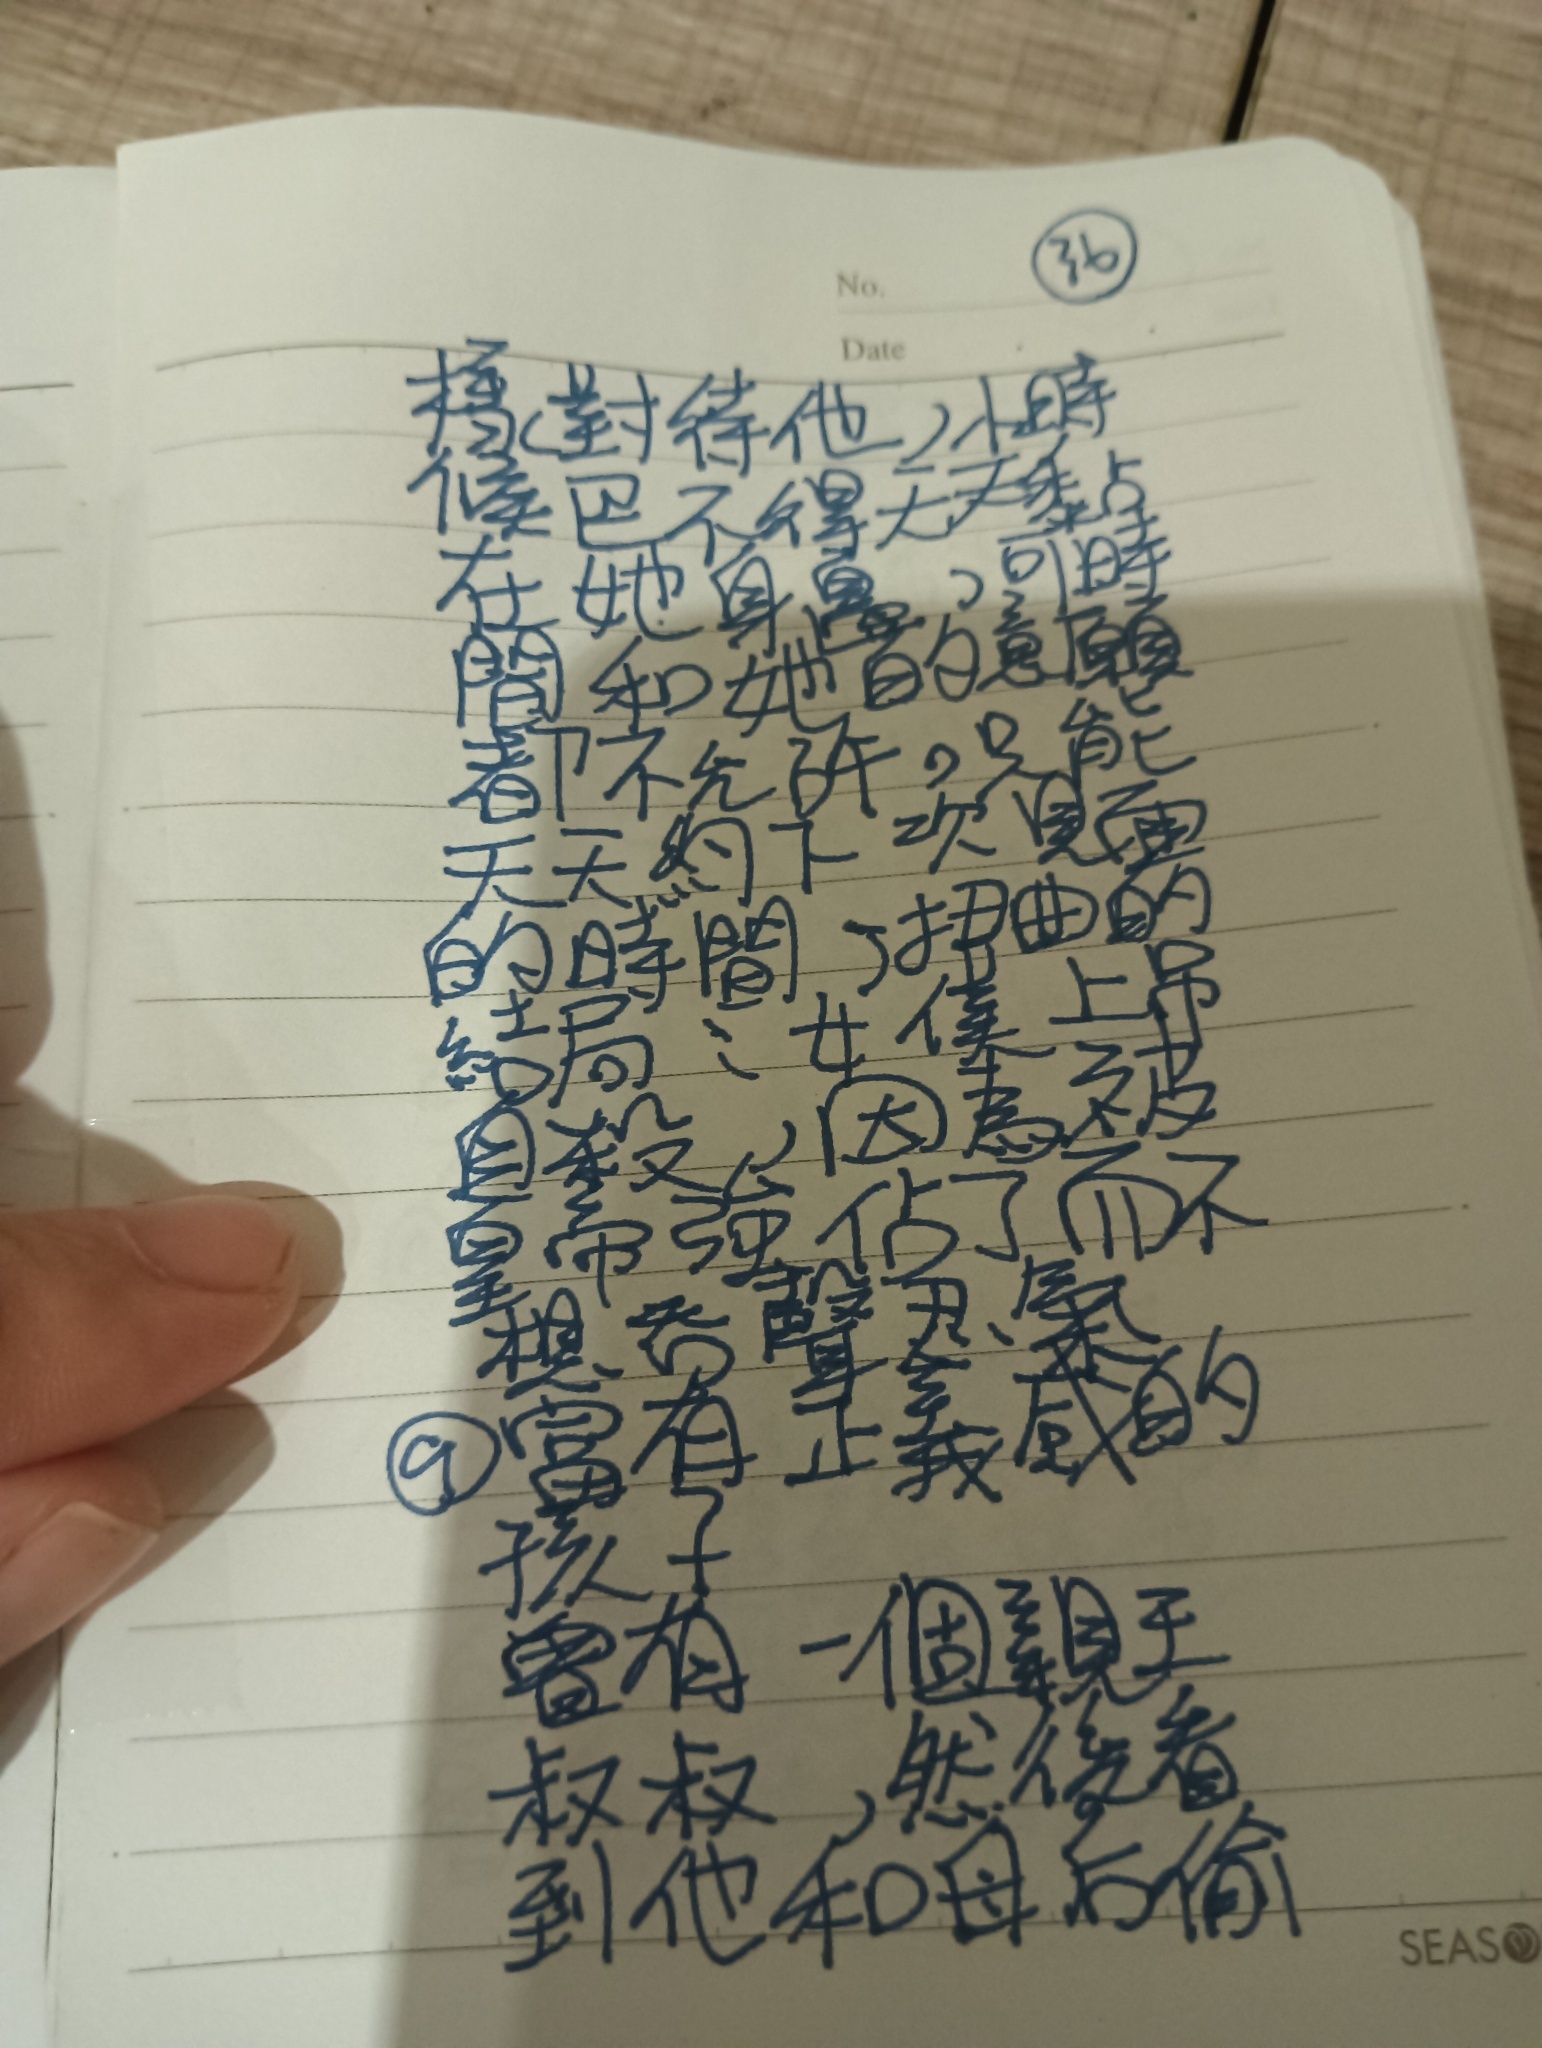 No. 36
Date
樣對待他，小時
候巴不得天天黏
在她身疊，可時
間和她的意願
都不允許。只能
天天約下次見面
的時間，扭曲的
結局：女僕上吊
自殺，因為不被
皇帝強佔了而不
想吞聲忍氣
⑨當有正義感的
孩子
曾有一個親王
叔叔，然後看
到他和母后偷
SEASO